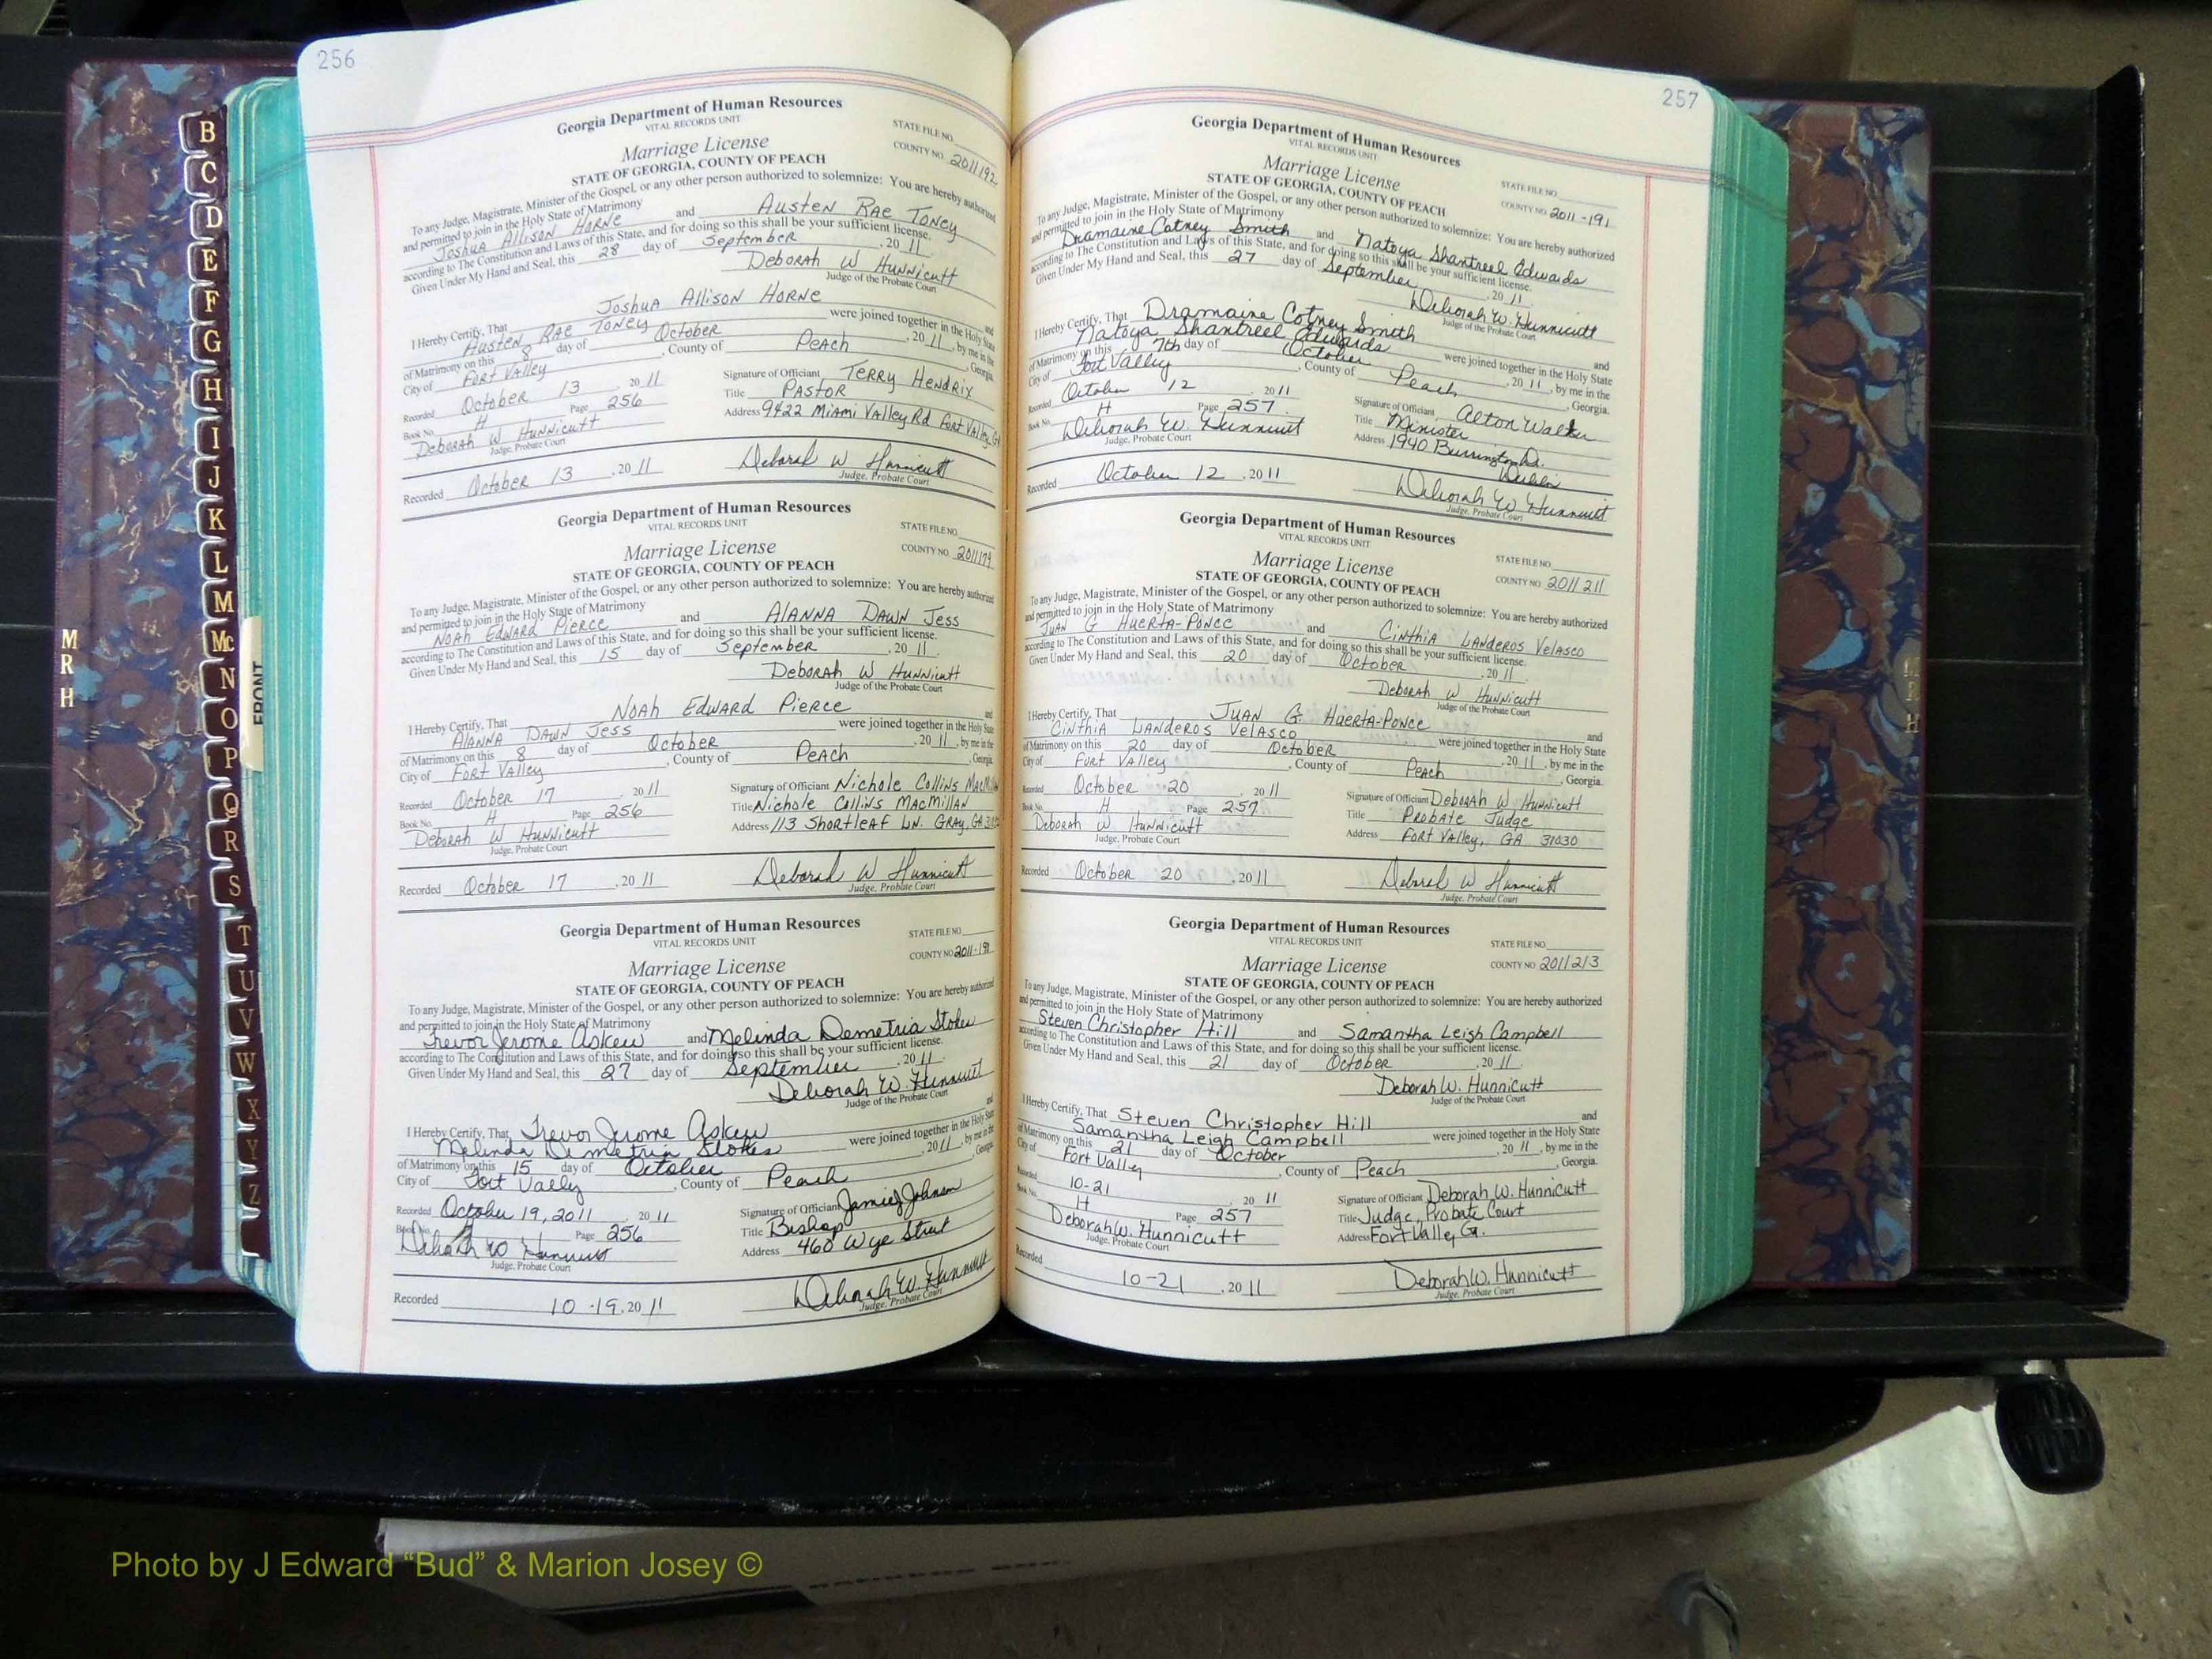 256
Georgia Department of Human Resources
VITAL RECORDS UNIT
STATE FILE NO.
Marriage License
COUNTY NO. 2011192
STATE OF GEORGIA, COUNTY OF PEACH
To any Judge, Magistrate, Minister of the Gospel, or any other person authorized to solemnize: You are hereby authorized
and permitted to join in the Holy State of Matrimony
Joshua Allison Horne and Austen Rae Toney
according to The Constitution and Laws of this State, and for doing so this shall be your sufficient license.
Given Under My Hand and Seal, this 28 day of September, 20 11.
Deborah W Hunnicutt
Judge of the Probate Court
I Hereby Certify, That Joshua Allison Horne and
Austen Rae Toney were joined together in the Holy State
of Matrimony on this 8 day of October, 20 11, by me in the
City of Fort Valley, County of Peach, Georgia.
Recorded October 13 20 11 Signature of Officiant Terry Hendrix
Book No. H Page 256 Title Pastor
Deborah W Hunnicutt Address 9422 Miami Valley Rd Fort Valley, GA
Judge, Probate Court
Recorded October 13, 20 11 Deborah W Hunnicutt
Judge, Probate Court
Georgia Department of Human Resources
VITAL RECORDS UNIT
STATE FILE NO.
Marriage License
COUNTY NO. 2011179
STATE OF GEORGIA, COUNTY OF PEACH
To any Judge, Magistrate, Minister of the Gospel, or any other person authorized to solemnize: You are hereby authorized
and permitted to join in the Holy State of Matrimony
Noah Edward Pierce and Alanna Dawn Jess
according to The Constitution and Laws of this State, and for doing so this shall be your sufficient license.
Given Under My Hand and Seal, this 15 day of September, 20 11.
Deborah W Hunnicutt
Judge of the Probate Court
I Hereby Certify, That Noah Edward Pierce and
Alanna Dawn Jess were joined together in the Holy State
of Matrimony on this 8 day of October, 20 11, by me in the
City of Fort Valley, County of Peach, Georgia.
Recorded October 17 20 11 Signature of Officiant Nichole Collins MacMillan
Book No. H Page 256 Title Nichole Collins MacMillan
Deborah W Hunnicutt Address 113 Shortleaf Ln. Gray, GA
Judge, Probate Court
Recorded October 17, 20 11 Deborah W Hunnicutt
Judge, Probate Court
Georgia Department of Human Resources
VITAL RECORDS UNIT
STATE FILE NO.
COUNTY NO. 2011-19
Marriage License
STATE OF GEORGIA, COUNTY OF PEACH
To any Judge, Magistrate, Minister of the Gospel, or any other person authorized to solemnize: You are hereby authorized
and permitted to join in the Holy State of Matrimony
Trevor Jerome Askew and Melinda Demetria Stokes
according to The Constitution and Laws of this State, and for doing so this shall be your sufficient license.
Given Under My Hand and Seal, this 27 day of September, 20 11.
Deborah W. Hunnicutt
Judge of the Probate Court
I Hereby Certify, That Trevor Jerome Askew and
Melinda Demetria Stokes were joined together in the Holy State
of Matrimony on this 15 day of October, 20 11, by me in the
City of Fort Vally, County of Peach, Georgia.
Recorded October 19, 2011, 20 11 Signature of Officiant Jamie J Johnson
Book No. H Page 256 Title Bishop
Deborah W Hunnicutt Address 460 Wye Street
Judge, Probate Court
Recorded 10-19, 20 11 Deborah W. Hunnicutt
Judge, Probate Court
257
Georgia Department of Human Resources
VITAL RECORDS UNIT
Marriage License
STATE FILE NO.
STATE OF GEORGIA, COUNTY OF PEACH
COUNTY NO. 2011-191
To any Judge, Magistrate, Minister of the Gospel, or any other person authorized to solemnize: You are hereby authorized
and permitted to join in the Holy State of Matrimony
Dramaine Cotney Smith and Natoya Shantreel Edwards
according to The Constitution and Laws of this State, and for doing so this shall be your sufficient license.
Given Under My Hand and Seal, this 27 day of September, 20 11.
Deborah W. Hunnicutt
Judge of the Probate Court
I Hereby Certify, That Dramaine Cotney Smith and
Natoya Shantreel Edwards were joined together in the Holy State
of Matrimony on this 7th day of October, 20 11, by me in the
City of Fort Valley, County of Peach, Georgia.
Recorded October 12, 20 11 Signature of Officiant Alton Walker
Book No. H Page 257 Title Minister
Deborah W. Hunnicutt Address 1940 Burrington Rd.
Judge, Probate Court
Recorded October 12, 20 11 Deborah W Hunnicutt
Judge, Probate Court
Georgia Department of Human Resources
VITAL RECORDS UNIT
Marriage License
STATE FILE NO.
STATE OF GEORGIA, COUNTY OF PEACH
COUNTY NO. 2011211
To any Judge, Magistrate, Minister of the Gospel, or any other person authorized to solemnize: You are hereby authorized
and permitted to join in the Holy State of Matrimony
Juan G Huerta-Ponce and Cinthia Landeros Velasco
according to The Constitution and Laws of this State, and for doing so this shall be your sufficient license.
Given Under My Hand and Seal, this 20 day of October, 20 11.
Deborah W Hunnicutt
Judge of the Probate Court
I Hereby Certify, That Juan G. Huerta-Ponce and
Cinthia Landeros Velasco were joined together in the Holy State
of Matrimony on this 20 day of October, 20 11, by me in the
City of Fort Valley, County of Peach, Georgia.
Recorded October 20, 20 11 Signature of Officiant Deborah W Hunnicutt
Book No. H Page 257 Title Probate Judge
Deborah W Hunnicutt Address Fort Valley, GA 31030
Judge, Probate Court
Recorded October 20, 20 11 Deborah W Hunnicutt
Judge, Probate Court
Georgia Department of Human Resources
VITAL RECORDS UNIT
STATE FILE NO.
Marriage License
COUNTY NO. 2011213
STATE OF GEORGIA, COUNTY OF PEACH
To any Judge, Magistrate, Minister of the Gospel, or any other person authorized to solemnize: You are hereby authorized
and permitted to join in the Holy State of Matrimony
Steven Christopher Hill and Samantha Leigh Campbell
according to The Constitution and Laws of this State, and for doing so this shall be your sufficient license.
Given Under My Hand and Seal, this 21 day of October, 20 11.
Deborah W. Hunnicutt
Judge of the Probate Court
I Hereby Certify, That Steven Christopher Hill and
Samantha Leigh Campbell were joined together in the Holy State
of Matrimony on this 21 day of October, 20 11, by me in the
City of Fort Valley, County of Peach, Georgia.
Recorded 10-21 20 11 Signature of Officiant Deborah W. Hunnicutt
Book No. H Page 257 Title Judge, Probate Court
Deborah W. Hunnicutt Address Fort Valley Ga.
Judge, Probate Court
Recorded 10-21, 20 11 Deborah W. Hunnicutt
Judge, Probate Court
B
C
D
E
F
G
H
I
J
K
L
M
Mc
N
O
P
Q
R
S
T
U
V
W
X
Y
Z
FRONT
M
R
H
M
R
H
Photo by J Edward “Bud” & Marion Josey ©